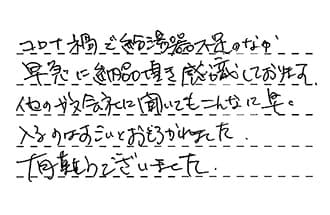 コロナ禍で給湯器不足のなか
早急に納品頂き感謝しております。
他のガス会社に聞いてもこんなに早く
入るのはすごいとおどろかれました。
有難うございました。